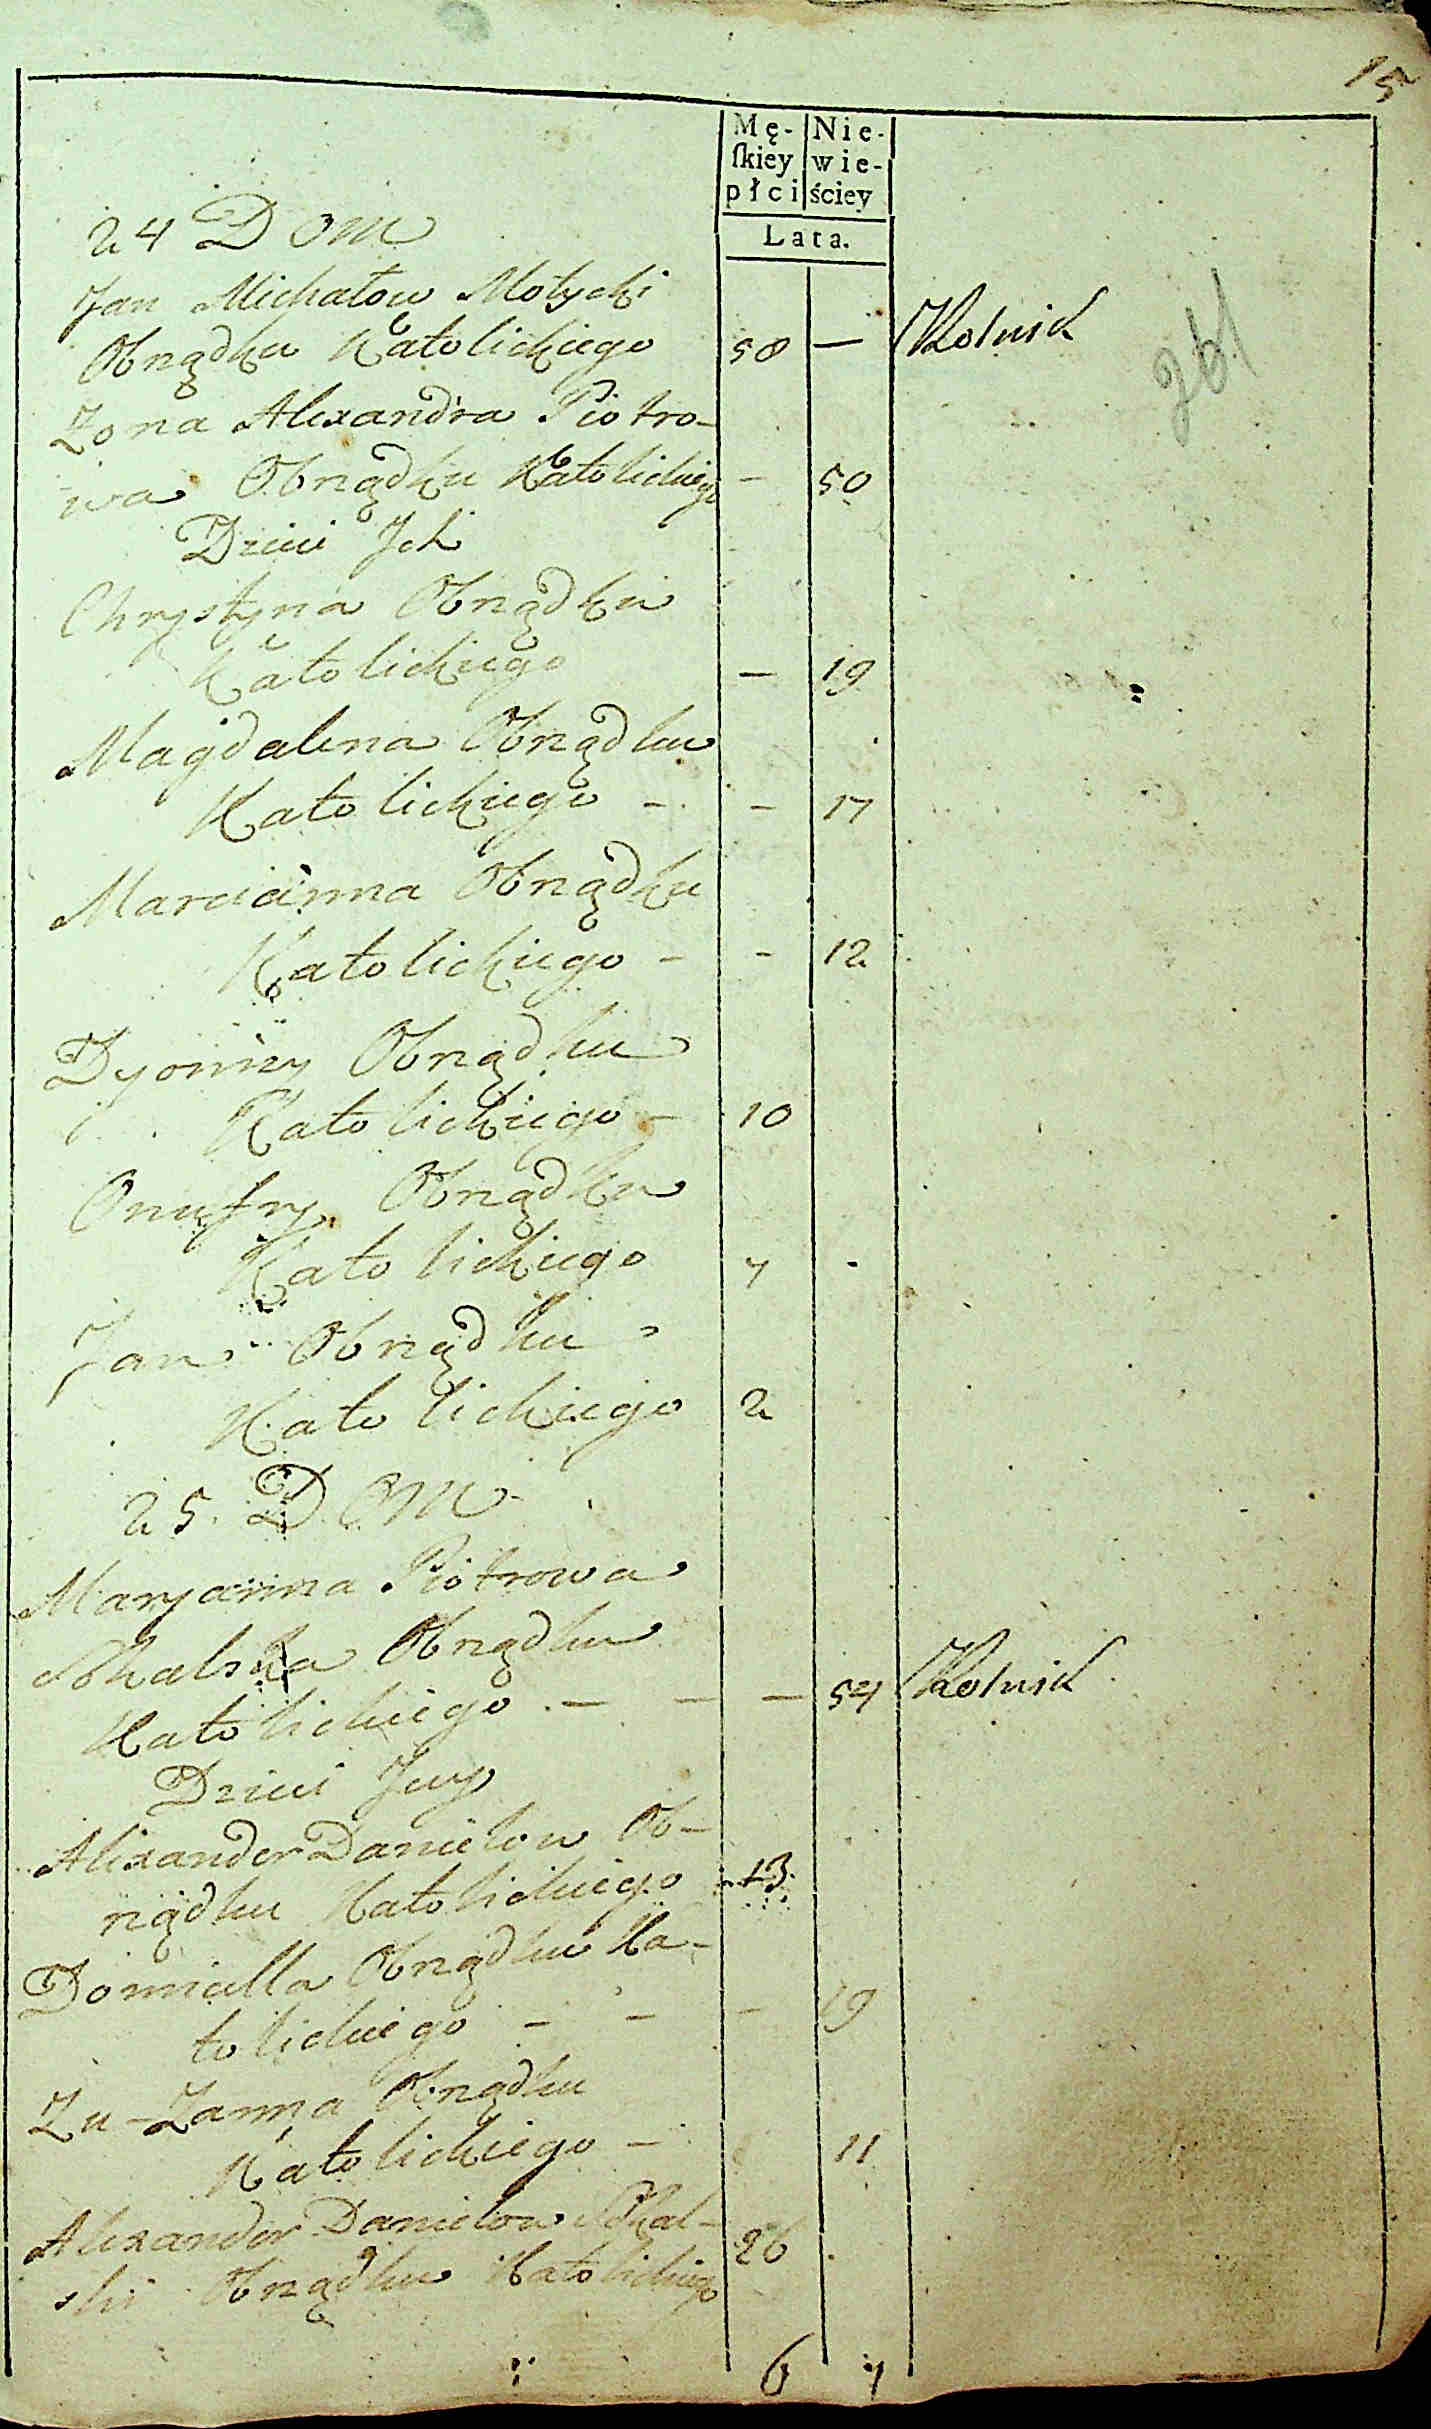 15
Mę- Nie-
ſkiey wie-
płci ściey
Lata.
24 Dom
Jan Michałow Motycki
Obrządku Katolickiego 58 — Rolnik
361
Zona Alexandra Piotro-
wa Obrządku Katolickiego - 50
Dzieci Jch
Chrystyna Obrządku
Katolickiego — 19
Magdalena Obrządku
Katolickiego - - 17
Marcianna Obrządku
Katolickiego - - 12
Dyonizy Obrządku
Katolickiego - 10
Onufry Obrządku
Katolickiego 7 -
Jan Obrządku
Katolickiego 2
25. Dom
Maryanna Piotrowa
Skalska Obrządku
Katolickiego - — — 54 Rolnik
Dzieci Jey
Alixander Danielow Ob-
rządku Katolickiego 13
Domicella Obrządku Ka-
tolickiego - - - 19
Zu-Zanna Obrządku
Katolickiego - 11
Alexander Danielow Skal-
ski Obrządku Katolickiego 26
6 7